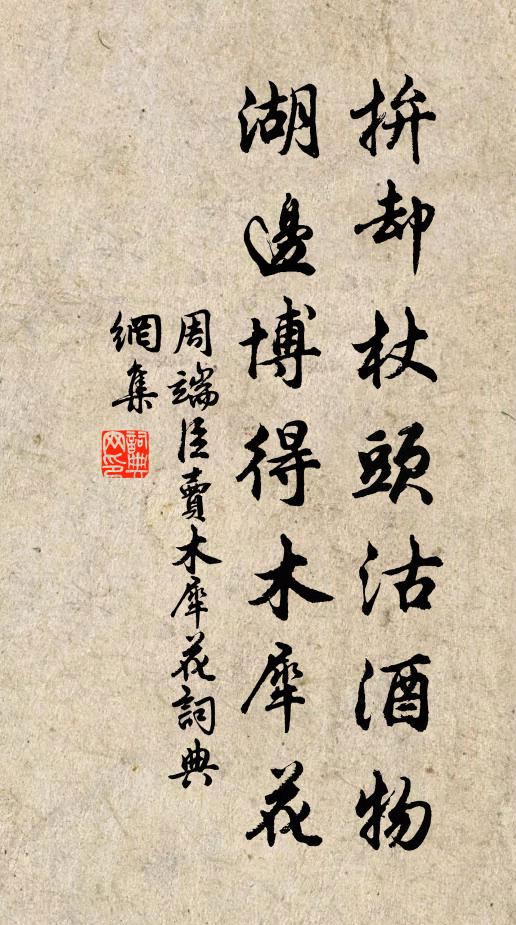 拚却杖頭沽酒物
湖邊博得木犀花
周端臣賣木犀花詞典
網集
詞典網印